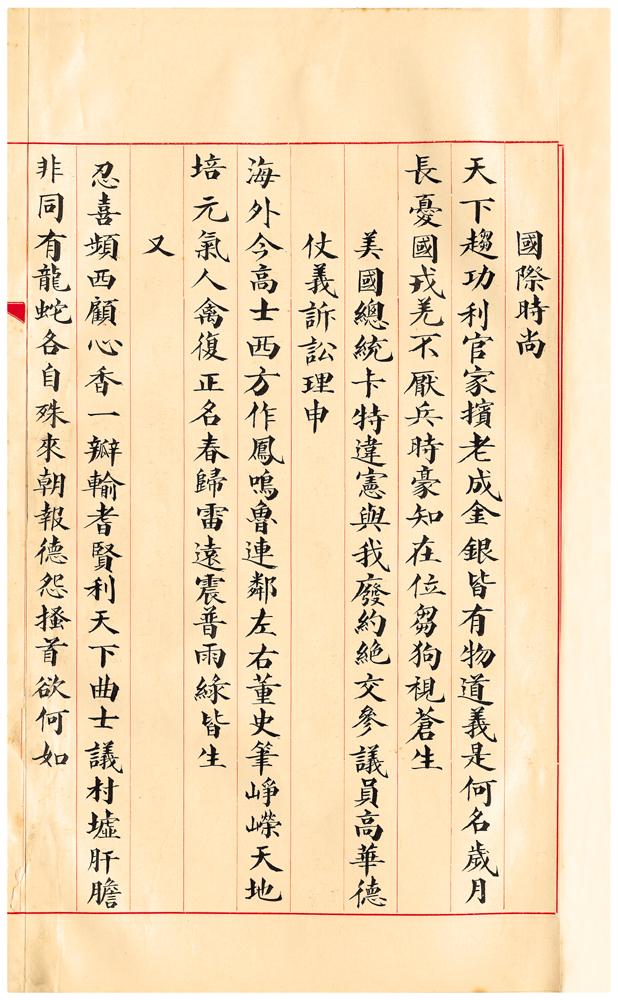 國際時尚
天下趨功利官家擯老成金銀皆有物道義是何名歲月
長憂國戎羌不厭兵時豪知在位芻狗視蒼生
美國總統卡特違憲與我廢約絕交參議員高華德
仗義訴訟理申
海外今高士西方作鳳鳴魯連鄰左右董史筆崢嶸天地
培元氣人禽復正名春歸雷遠震普雨綠皆生
又
忍喜頻西顧心香一瓣輸耆賢利天下曲士議村墟肝膽
非同有龍蛇各自殊來朝報德怨搔首欲何如